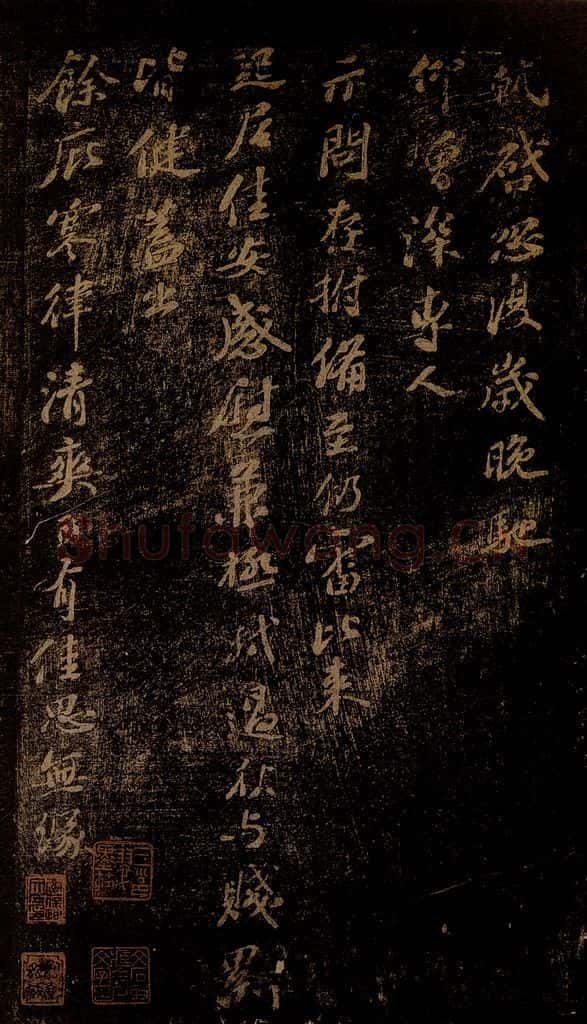 軾啓忽復歲晚馳
仰深專人
示問存拊備至仍審比來
起居佳安感慰兼極軾与賤累
皆健蓋出
餘庇寒律清爽有佳思無緣
Shufawang.cn